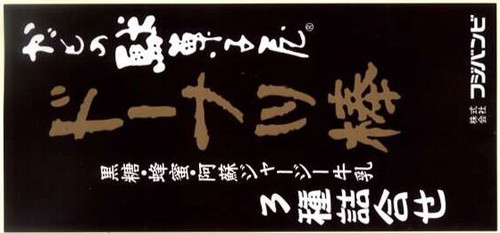 かどの駄菓子屋®
ドーナツ棒
黒糖・蜂蜜・阿蘇ジャージー牛乳
3種詰合せ
株式会社
フジバンビ